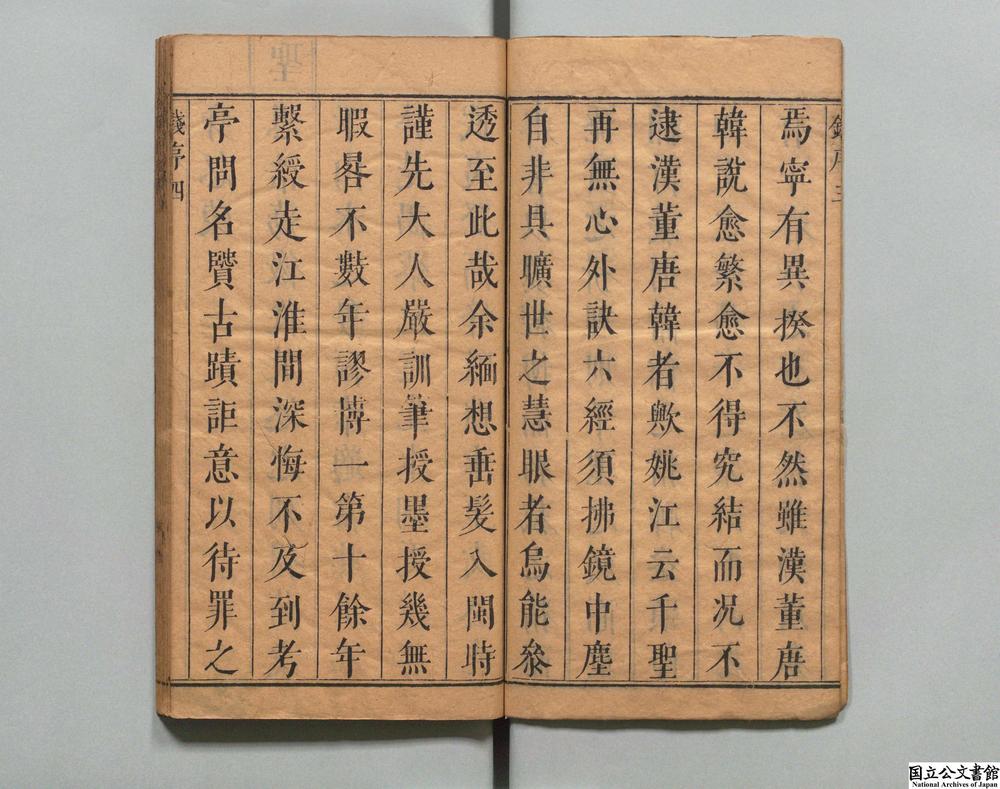 焉寧有異揆也不然雖漢董唐
韓說愈繁愈不得究結而況不
逮漢董唐韓者歟姚江云千聖
再無心外訣六經須拂鏡中塵
自非具曠世之慧眼者烏能叅
透至此哉余緬想垂髮入閩時
謹先大人嚴訓筆授墨授幾無
暇晷不數年謬博一第十餘年
繫綬走江淮間深悔不及到考
亭問名賢古蹟詎意以待罪之
四
国立公文書館
National Archives of Japan